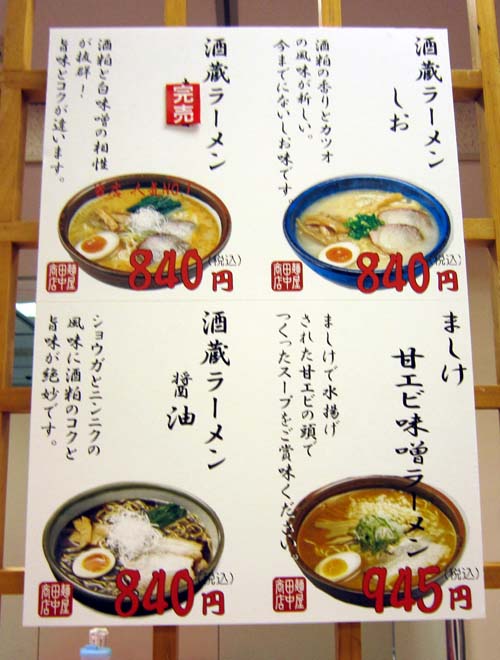 酒蔵ラーメン
しお
酒粕の香りとカツオ
の風味が新しい。
今までにないしお味です。
840円
(税込)
麺屋
田中
商店
酒蔵ラーメン
完売
酒粕と白味噌の相性
が抜群!
旨味とコクが違います。
当店 人気NO.1
840円
(税込)
麺屋
田中
商店
ましけ
甘エビ味噌ラーメン
ましけで水揚げ
された甘エビの頭で
つくったスープをご賞味ください。
945円
(税込)
麺屋
田中
商店
酒蔵ラーメン
醤油
ショウガとニンニクの
風味に酒粕のコクと
旨味が絶妙です。
840円
(税込)
麺屋
田中
商店